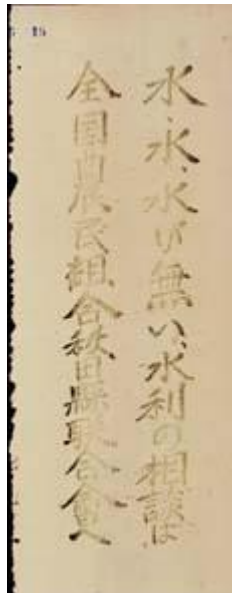 水、水、水が無い、水利の相談は
全国農民組合秋田縣聯合會へ